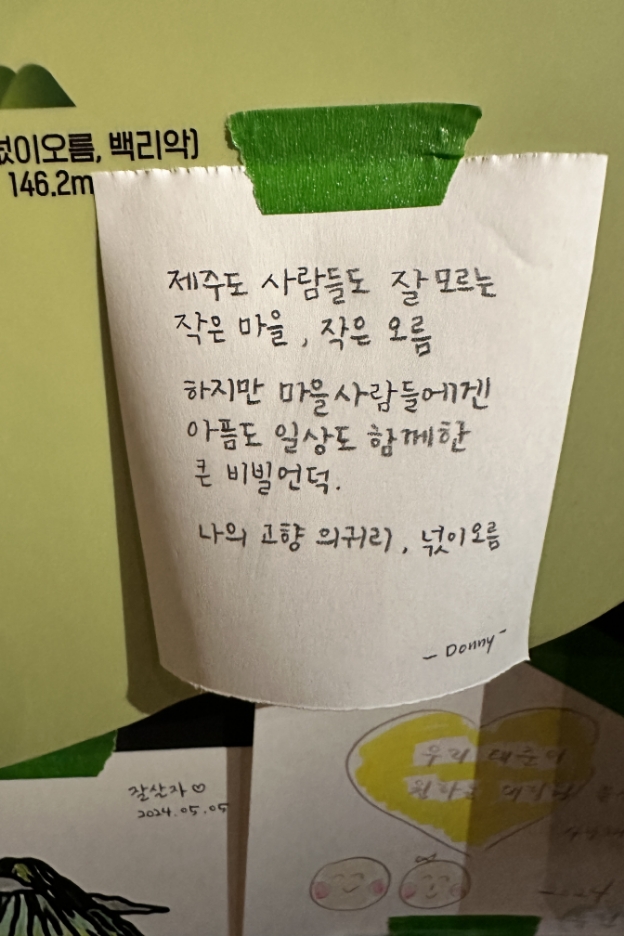 넋이오름, 백리악)
146.2m
제주도 사람들도 잘 모르는
작은 마을, 작은 오름
하지만 마을사람들에겐
아픔도 일상도 함께한
큰 비빌언덕.
나의 고향 의귀리, 넋이오름
- Donny -
잘살자♡
2024.05.05
우리